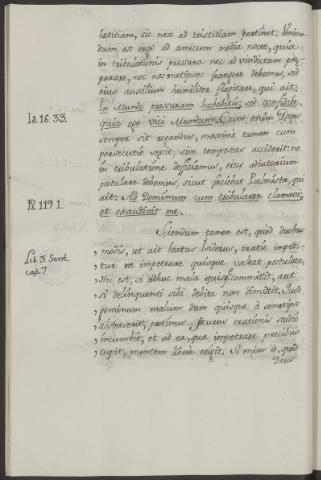 lætitiam, sic nox ad tristitiam pertinet. Venien-
dum est ergo ad amicum media nocte, quia
in tribulationis pressura nec ad vindictam præ-
parare, nec nosmetipsos frangere debemus, sed
eius auxilium humiliter flagitare, qui ait:
Io. 16. 33.
In Mundo pressuram habebitis, sed confidite,
quia ego vici Mundum. Quod enim Deus
semper sit rogandus, maxime tamen cum
persecutio sævit, sive tempestas acciderit: ne
in tribulatione deficiamus, eius adiutorium
postulare debemus, sicut faciebat Psalmista, qui
Ps. 119. 1.
ait: Ad Dominum cum tribularer clamavi,
et exaudivit me.
Sciendum tamen est, quod duobus
Lib. 3. Sent.
cap. 7
modis, ut ait beatus Isidorus, oratio impedi-
tur ne impetrare quisque valeat postulata,
Hoc est, si adhuc mala quisq committit, aut
si delinquenti sibi debita non dimittit. Quod
geminum malum dum quisque à semetipso
absterserit, protinus securus orationis studio
incumbit, et ad ea, quæ impetrare precibus
cupit, mentem liberè erigit. Si enim id, quod
Deus